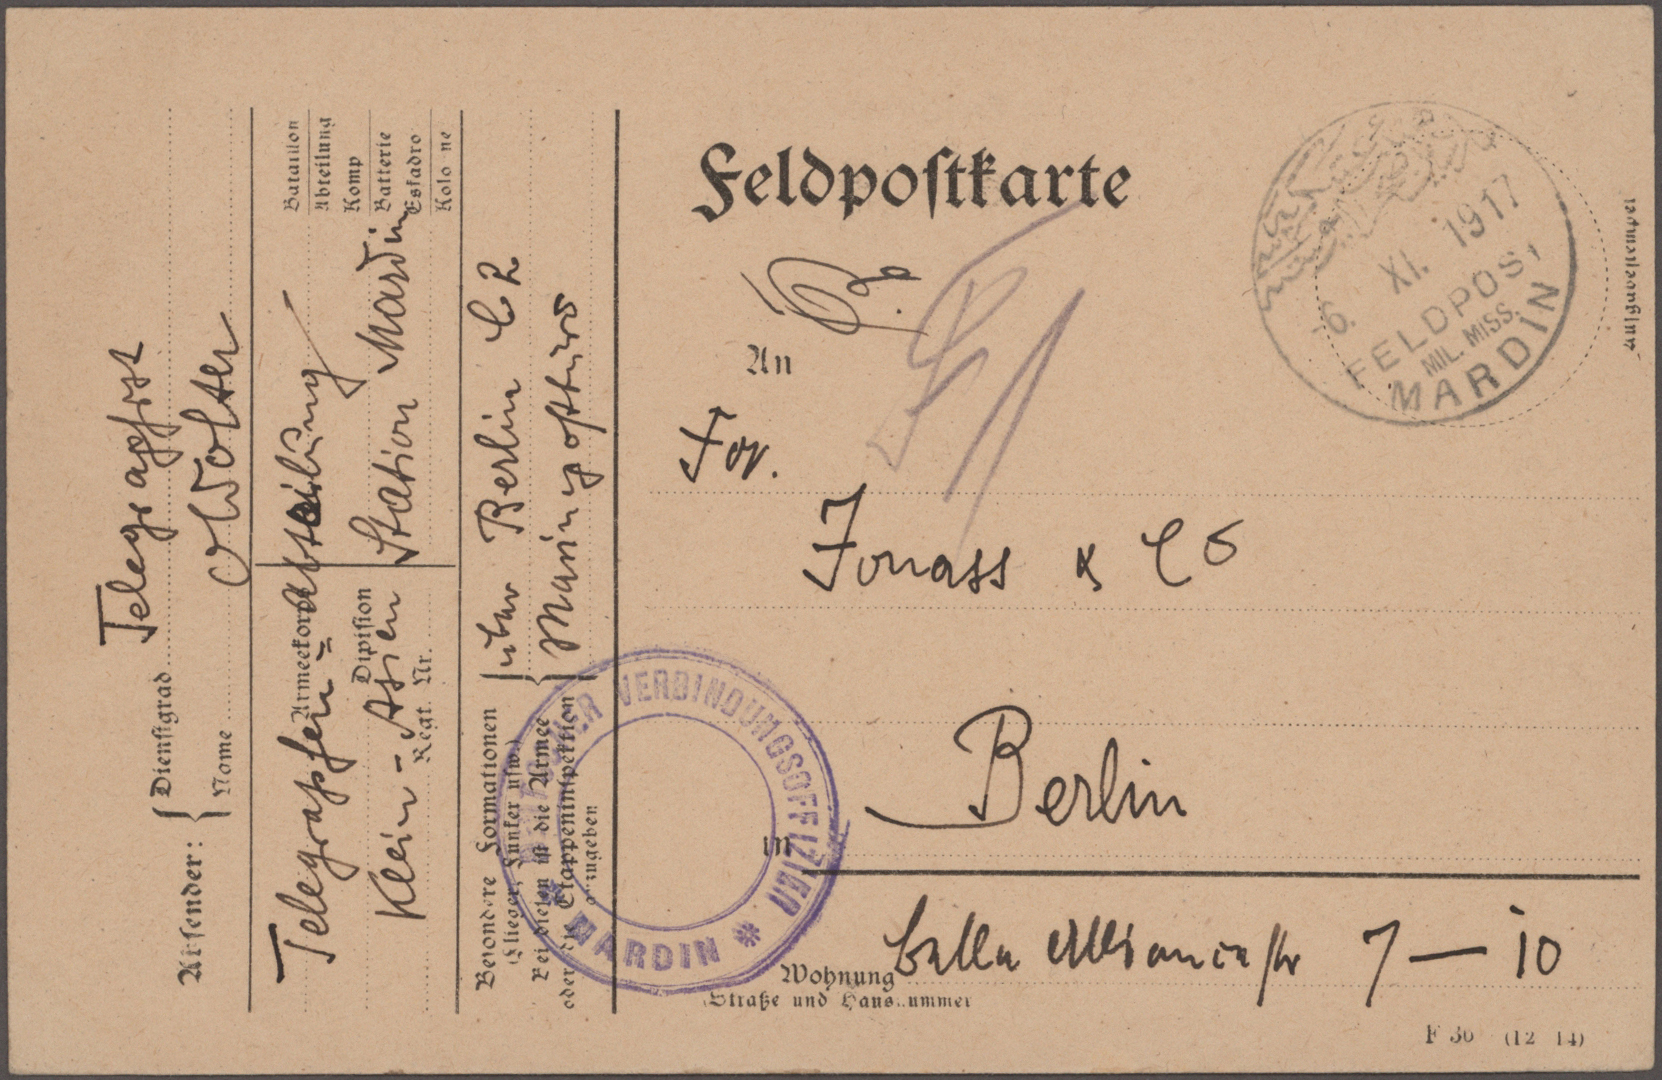 Feldpostkarte
An
For.
Jonass & Co
Berlin
in
Wohnung
Straße und Hausnummer
Belle Alliancestr 7 — 10
F 30 (12 14)
6. XI. 1917
FELDPOST
MIL. MISS.
MARDIN
Aufgabestempel
VERBINDUNGSOFFIZIER
* MARDIN *
Absender:
Dienstgrad
Telegraphist
Name
Wolter
Armeekorps
Division
Regt. Nr.
Bataillon
Abteilung
Komp
Batterie
Eskadro
Kolonne
Telegraphen=Abteilung
Klein-Asien Station Mardin
Besondere Formationen
(Flieger, Funker usw.)
Bei diesen ist die Armee
oder die Etappeninspektion
anzugeben
über Berlin C 2
Marinepostbüro